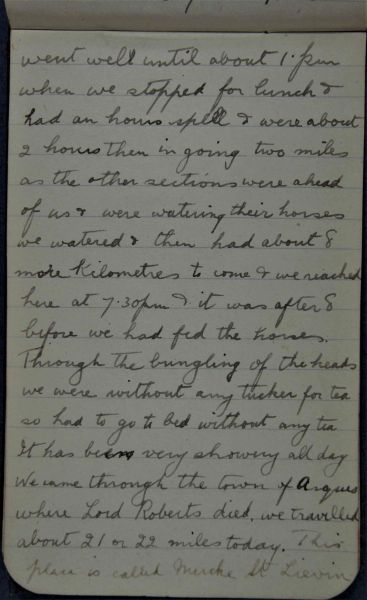 went well until about 1.pm
when we stopped for lunch &
had an hours spell & were about
2 hours then in going two miles
as the other sections were ahead
of us & were watering their horses
we watered & then had about 8
more Kilometres to come & we reached
here at 7.30pm & it was after 8
before we had fed the horses.
Through the bungling of the heads
we were without any tucker for tea
so had to go to bed without any tea
It has been very showery all day
We came through the town of Arques
where Lord Roberts died, we travelled
about 21 or 22 miles today. This
place is called Mercke St Lievin